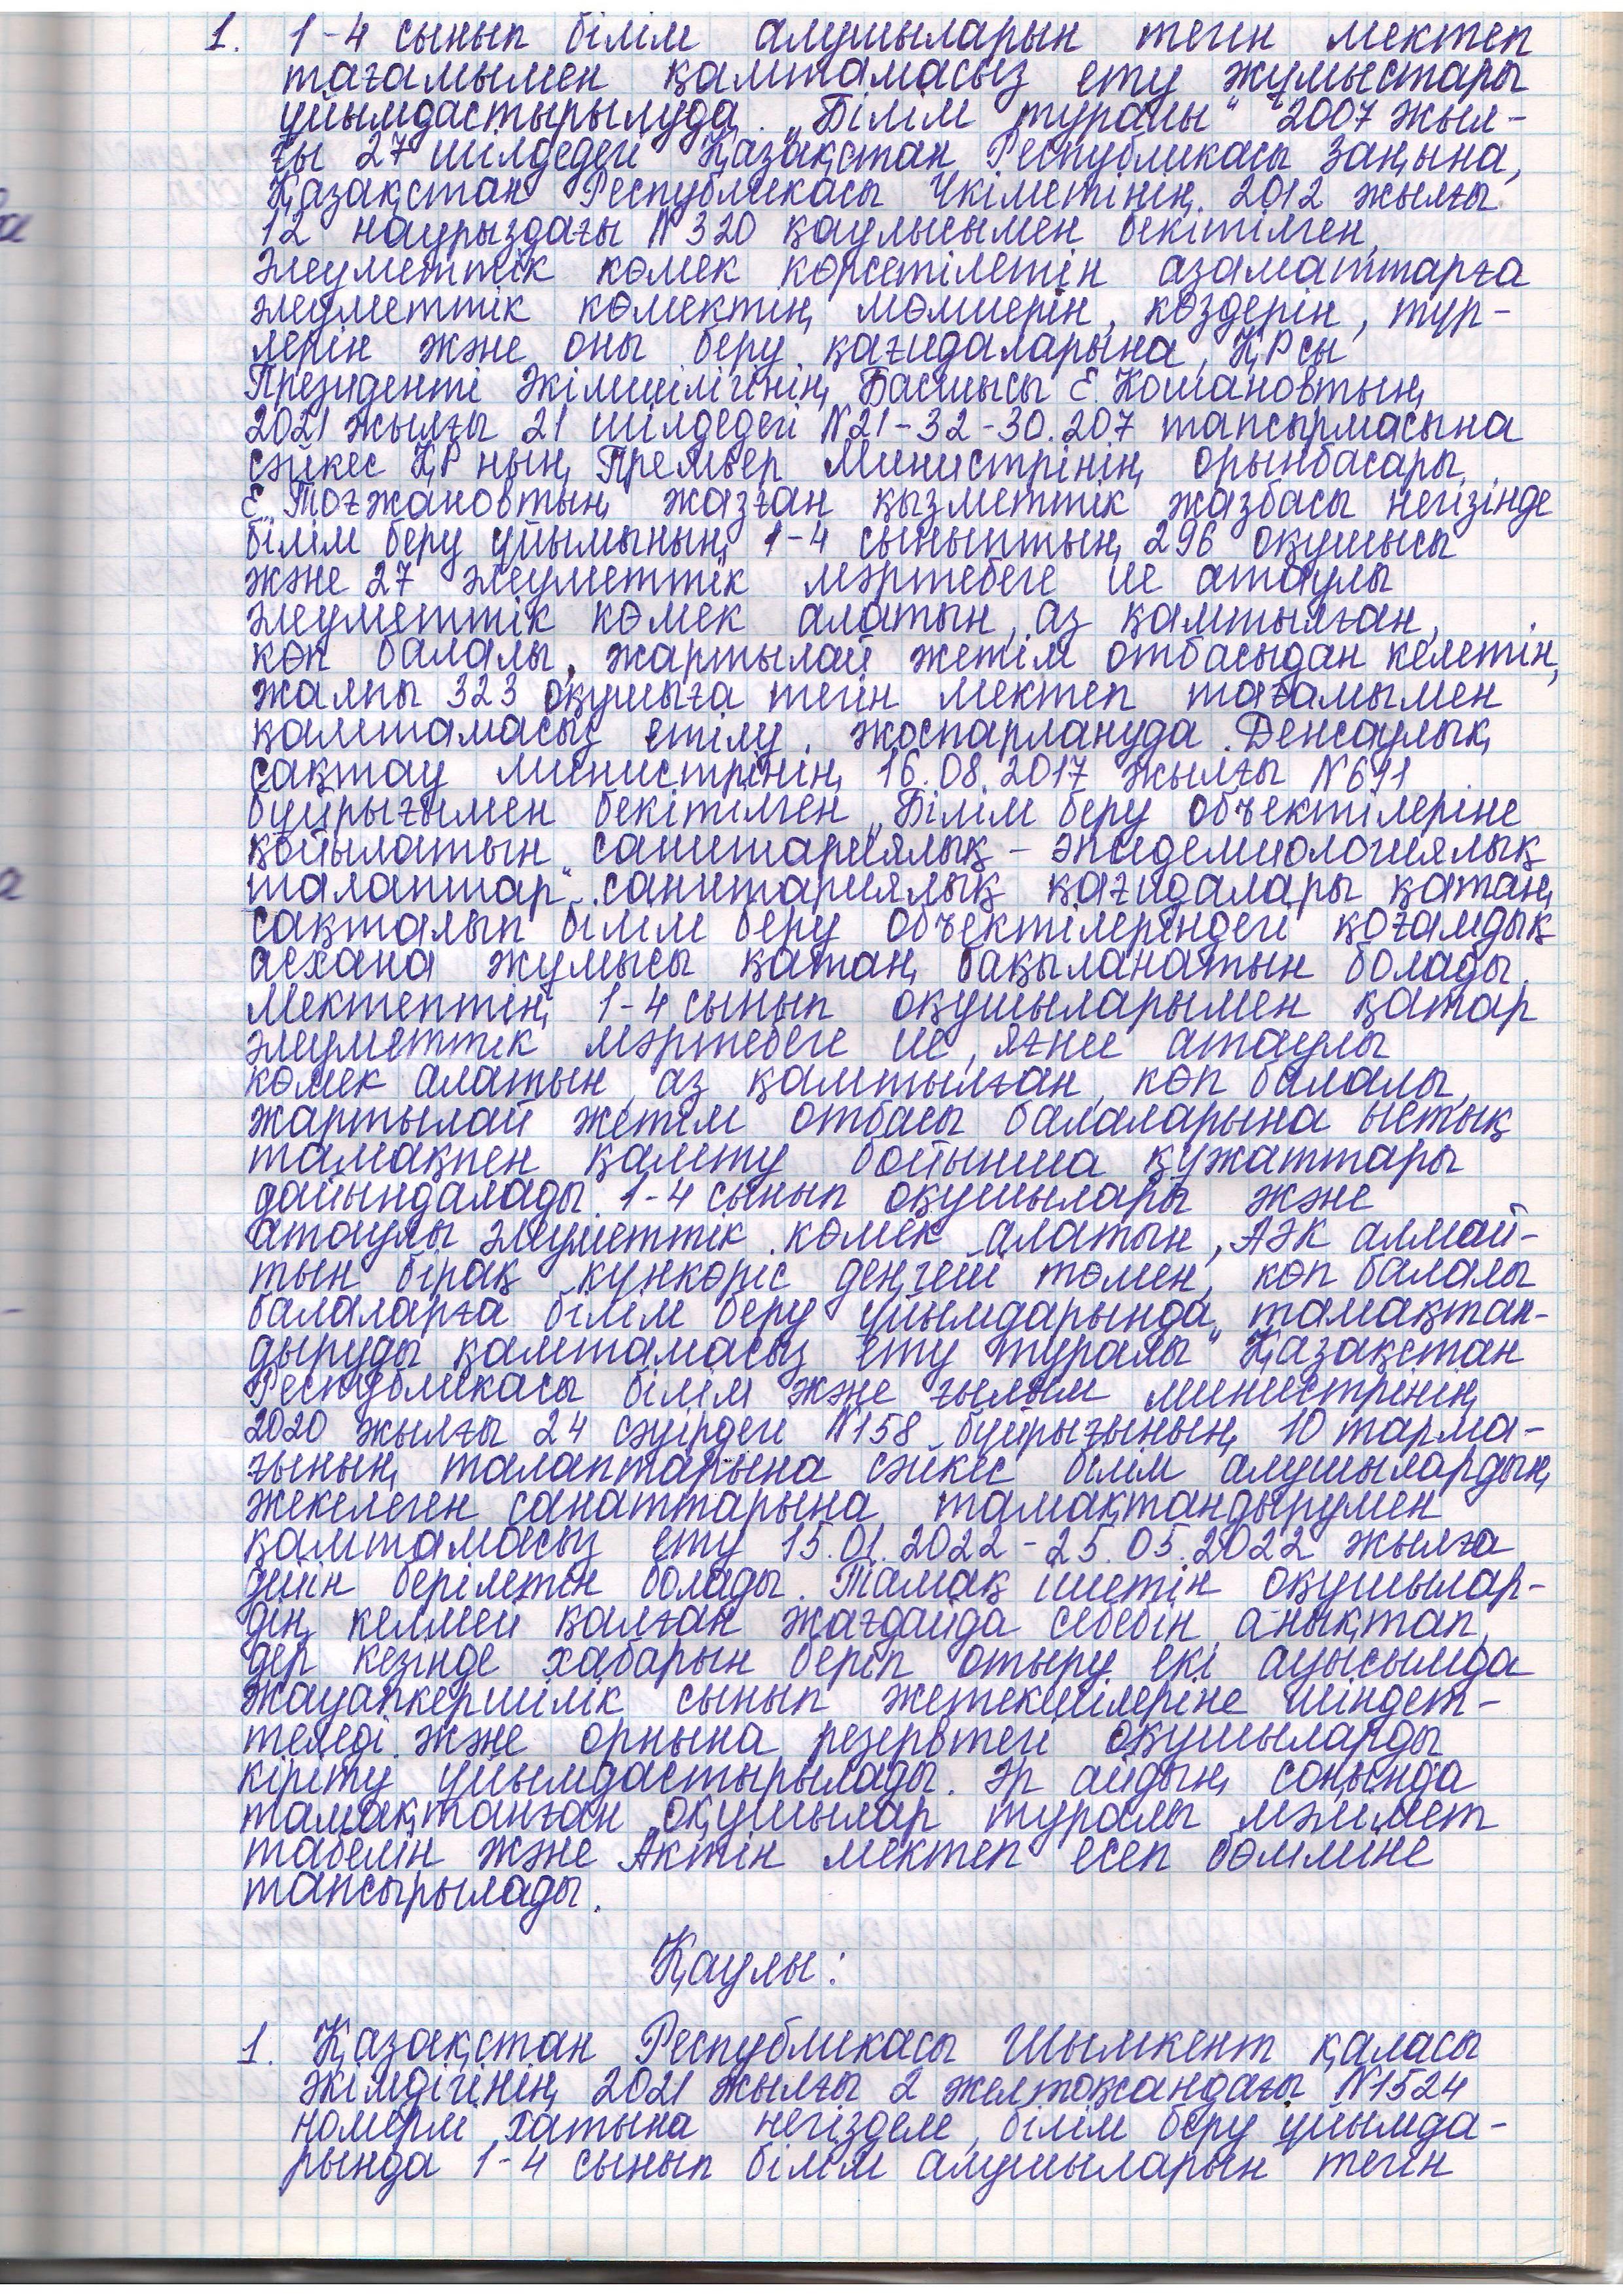 1. 1-4 сынып білім алушыларын тегін мектеп
тағамымен қамтамасыз ету жұмыстары
ұйымдастырылуда. „Білім туралы" 2007 жыл-
ғы 27 шілдедегі Қазақстан Республикасы Заңына,
Қазақстан Республикасы Үкіметінің 2012 жылғы
12 наурыздағы №320 қаулысымен бекітілген,
әлеуметтік көмек көрсетілетін азаматтарға
әлеуметтік көмектің мөлшерін, көздерін, түр-
лерін және оны беру қағидаларына, ҚРсы
Президенті Әкімшілігінің Басшысы Е. Кошановтың
2021 жылғы 21 шілдедегі №21-32-30.207 тапсырмасына
сәйкес ҚР ның Премьер Министрінің орынбасары
Е. Тоғжановтың жазған қызметтік жазбасы негізінде
білім беру ұйымының 1-4 сыныптың 296 оқушысы
және 27 әлеуметтік мәртебеге ие атаулы
әлеуметтік көмек алатын, аз қамтылған,
көп балалы, жартылай жетім отбасыдан келетін,
жалпы 323 оқушыға тегін мектеп тағамымен
қамтамасыз етілу жоспарлануда. Денсаулық
сақтау министрінің 16.08.2017 жылғы №611
бұйрығымен бекітілген „Білім беру объектілеріне
қойылатын санитариялық - эпидемиологиялық
талаптар" санитариялық қағидалары қатаң
сақталып білім беру объектілеріндегі қоғамдық
асхана жұмысы қатаң бақыланатын болады.
Мектептің 1-4 сынып оқушыларымен қатар
әлеуметтік мәртебеге ие, яғни атаулы
көмек алатын, аз қамтылған, көп балалы,
жартылай жетім отбасы балаларына ыстық
тамақпен қамту бойынша құжаттары
дайындалады. 1-4 сынып оқушылары және
атаулы әлеуметтік көмек алатын, АӘК алмай-
тын бірақ күнкөріс деңгейі төмен, көп балалы
балаларға білім беру ұйымдарында тамақтан-
дыруды қамтамасыз ету туралы" Қазақстан
Республикасы білім және ғылым министрінің
2020 жылғы 24 сәуірдегі №158 бұйрығының 10 тарма-
ғының талаптарына сәйкес білім алушылардың
жекелеген санаттарына тамақтандырумен
қамтамасыз ету 15.01.2022 - 25.05.2022 жылға
дейін берілетін болады. Тамақ ішетін оқушылар-
дің келмей қалған жағдайда себебін анықтап,
дер кезінде хабарын беріп отыру екі ауысымда
жауапкершілік сынып жетекшілеріне міндет-
теледі және орнына резервтегі оқушыларды
кіріту ұйымдастырылады. Әр айдың соңында
тамақтанған оқушылар туралы мәлімет
табелін және Актін мектеп есеп бөліміне
тапсырылады.
Қаулы:
1. Қазақстан Республикасы Шымкент қаласы
әкімдігінің 2021 жылғы 2 желтоқсандағы №1524
номерлі хатына негізделе, білім беру ұйымда-
рында 1-4 сынып білім алушыларын тегін